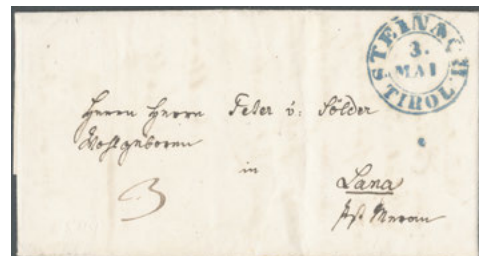 STEINACH
3.
MAI
TIROL
Herrn Herrn Peter v: Sölder
Wohlgeboren
in
Lana
Pst Meran
3